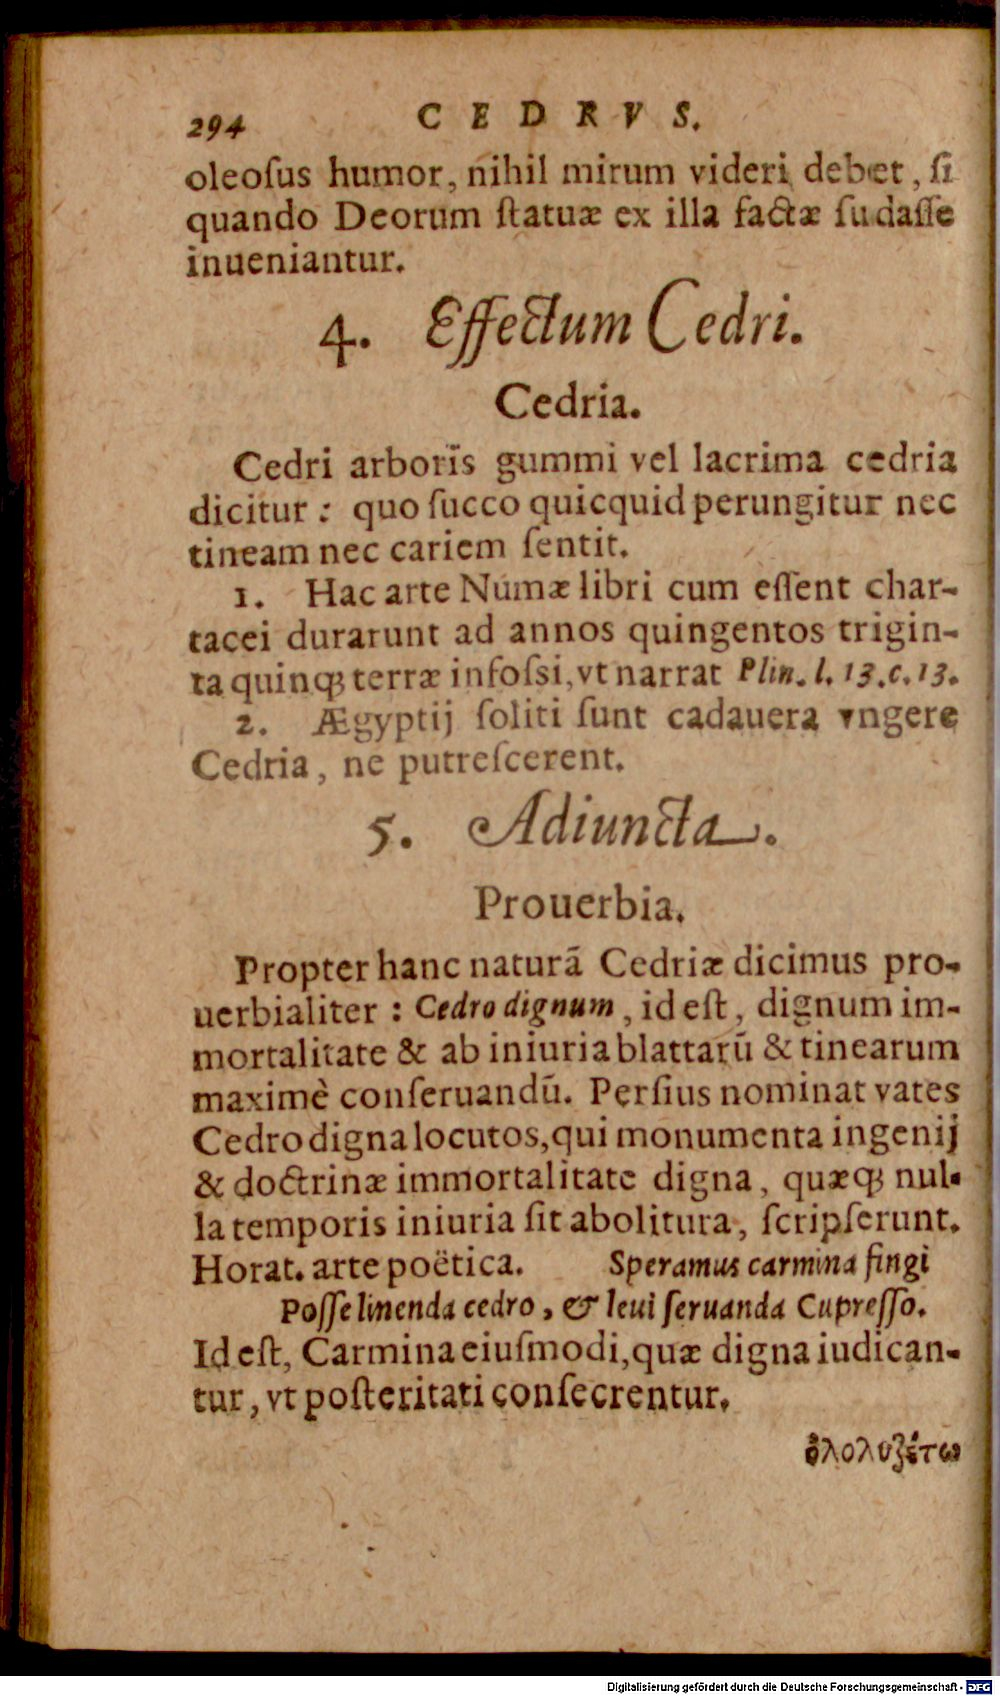 294 CEDRVS.
oleoſus humor, nihil mirum videri debet, ſi
quando Deorum ſtatuæ ex illa factæ ſudaſſe
inueniantur.
4. Effectum Cedri.
Cedria.
Cedri arboris gummi vel lacrima cedria
dicitur: quo ſucco quicquid perungitur nec
tineam nec cariem ſentit.
1. Hac arte Numæ libri cum eſſent char-
tacei durarunt ad annos quingentos trigin-
ta quinq; terræ infoſſi, vt narrat Plin. l. 13. c. 13.
2. Ægyptij ſoliti ſunt cadauera vngere
Cedria, ne putreſcerent.
5. Adiuncta.
Prouerbia.
Propter hanc naturã Cedriæ dicimus pro-
uerbialiter: Cedro dignum, id eſt, dignum im-
mortalitate & ab iniuria blattarũ & tinearum
maximè conſeruandũ. Perſius nominat vates
Cedro digna locutos, qui monumenta ingenij
& doctrinæ immortalitate digna, quæq; nul-
la temporis iniuria ſit abolitura, ſcripſerunt.
Horat. arte poëtica. Speramus carmina fingi
Poſſe linenda cedro, & leui ſeruanda Cupreſſo.
Id eſt, Carmina eiuſmodi, quæ digna iudican-
tur, vt poſteritati conſecrentur.
ὀλολυζέτω
Digitalisierung gefördert durch die Deutsche Forschungsgemeinschaft - DFG